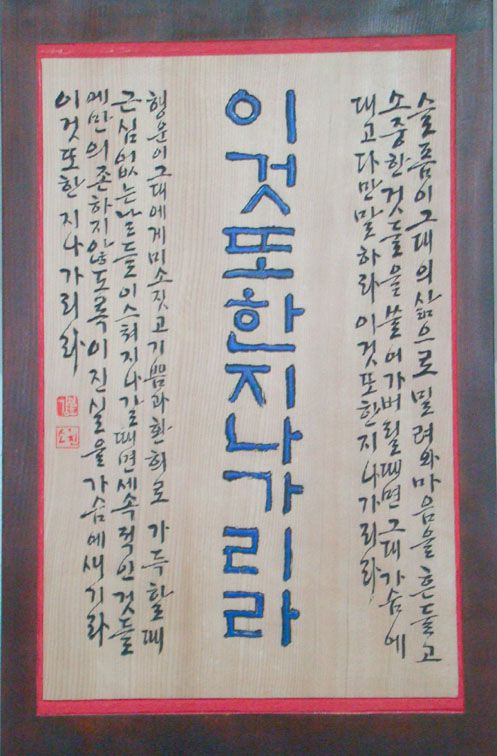 슬픔이 그대의 삶으로 밀려와 마음을 흔들고
소중한 것들을 쓸어가버릴 때면 그대 가슴에
대고 다만 말하라 이것 또한 지나가리라
이것 또한 지나가리라
행운이 그대에게 미소짓고 기쁨과 환희로 가득할 때
근심없는 날들이 스쳐지나갈 때면 세속적인 것들
에만 의존하지 않도록 이 진실을 가슴에 새기라
이것 또한 지나가리라